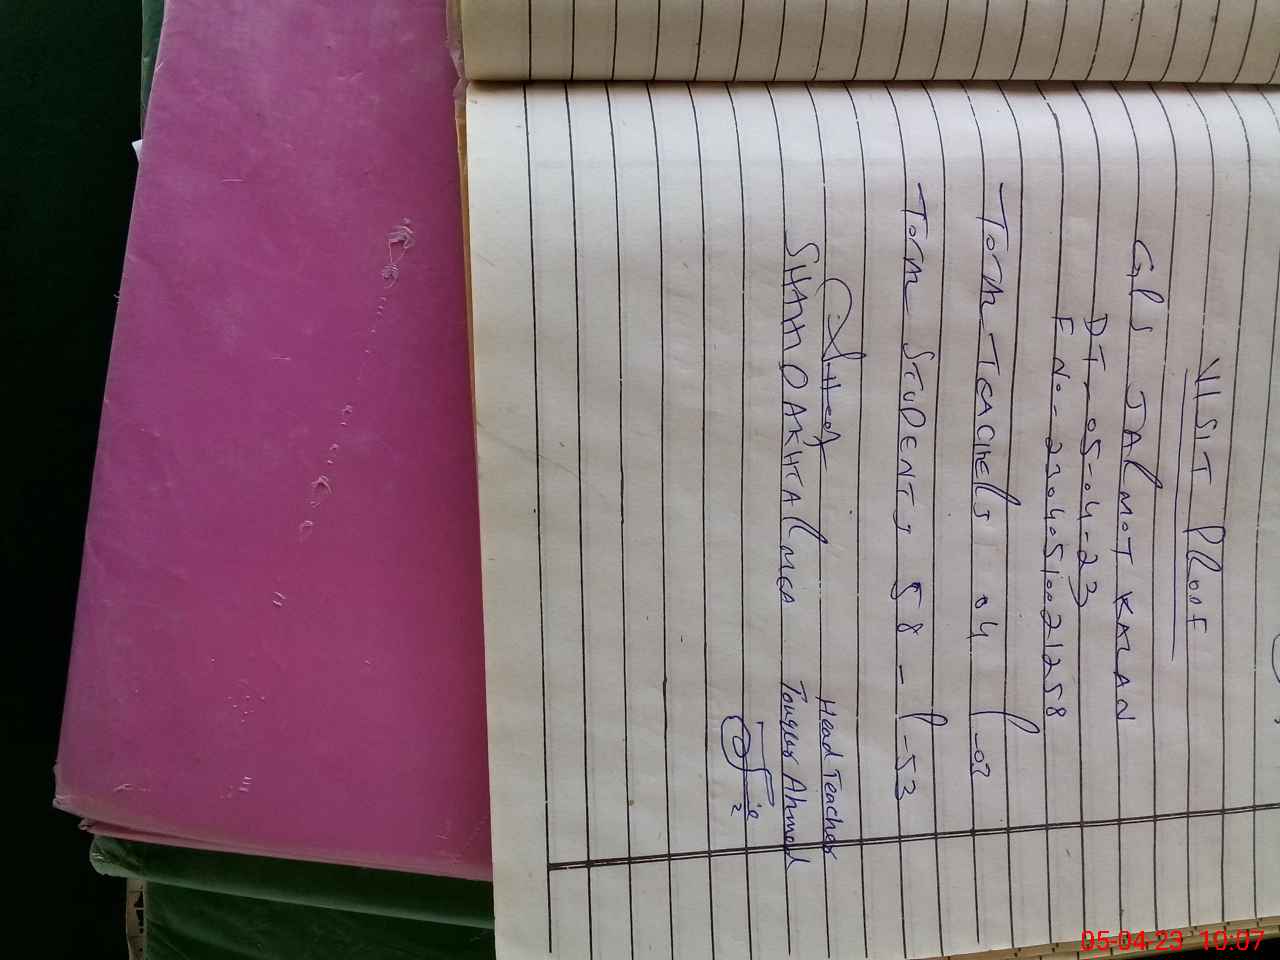 VISIT PROOF
GPS JALMOT KALAN
DT - 05-04-23
E No - 23040510021258
TOTAL TEACHERS 04 P-03
TOTAL STUDENTS 58 - P-53
SHAHID AKHTAR MEA
Head Teacher
Touqeer Ahmed
05-04-23 10:07